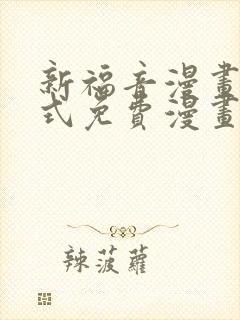 新福音漫畫
式免費漫畫
辣菠蘿